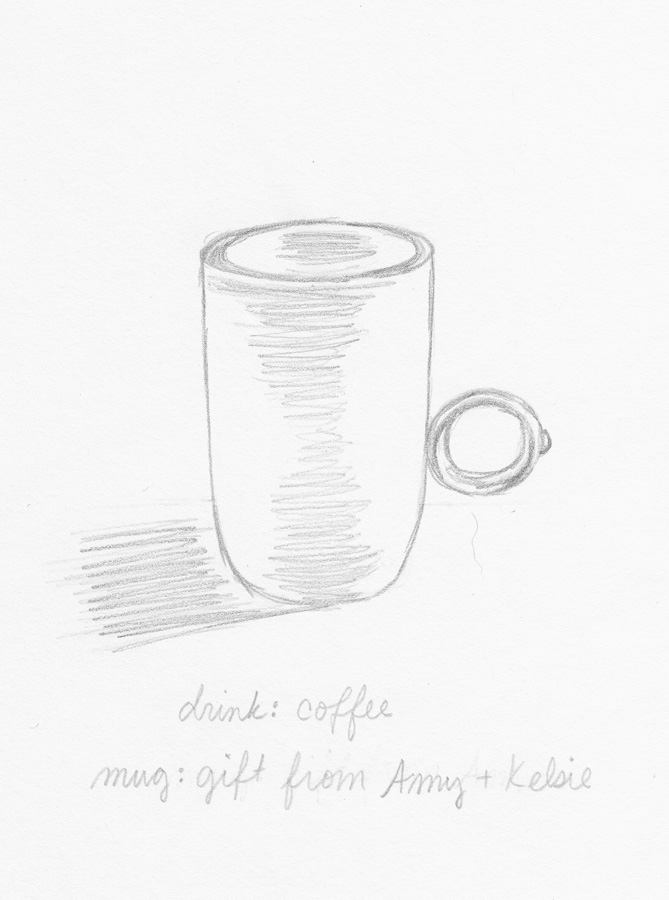 drink: coffee
mug: gift from Amy + Kelsie